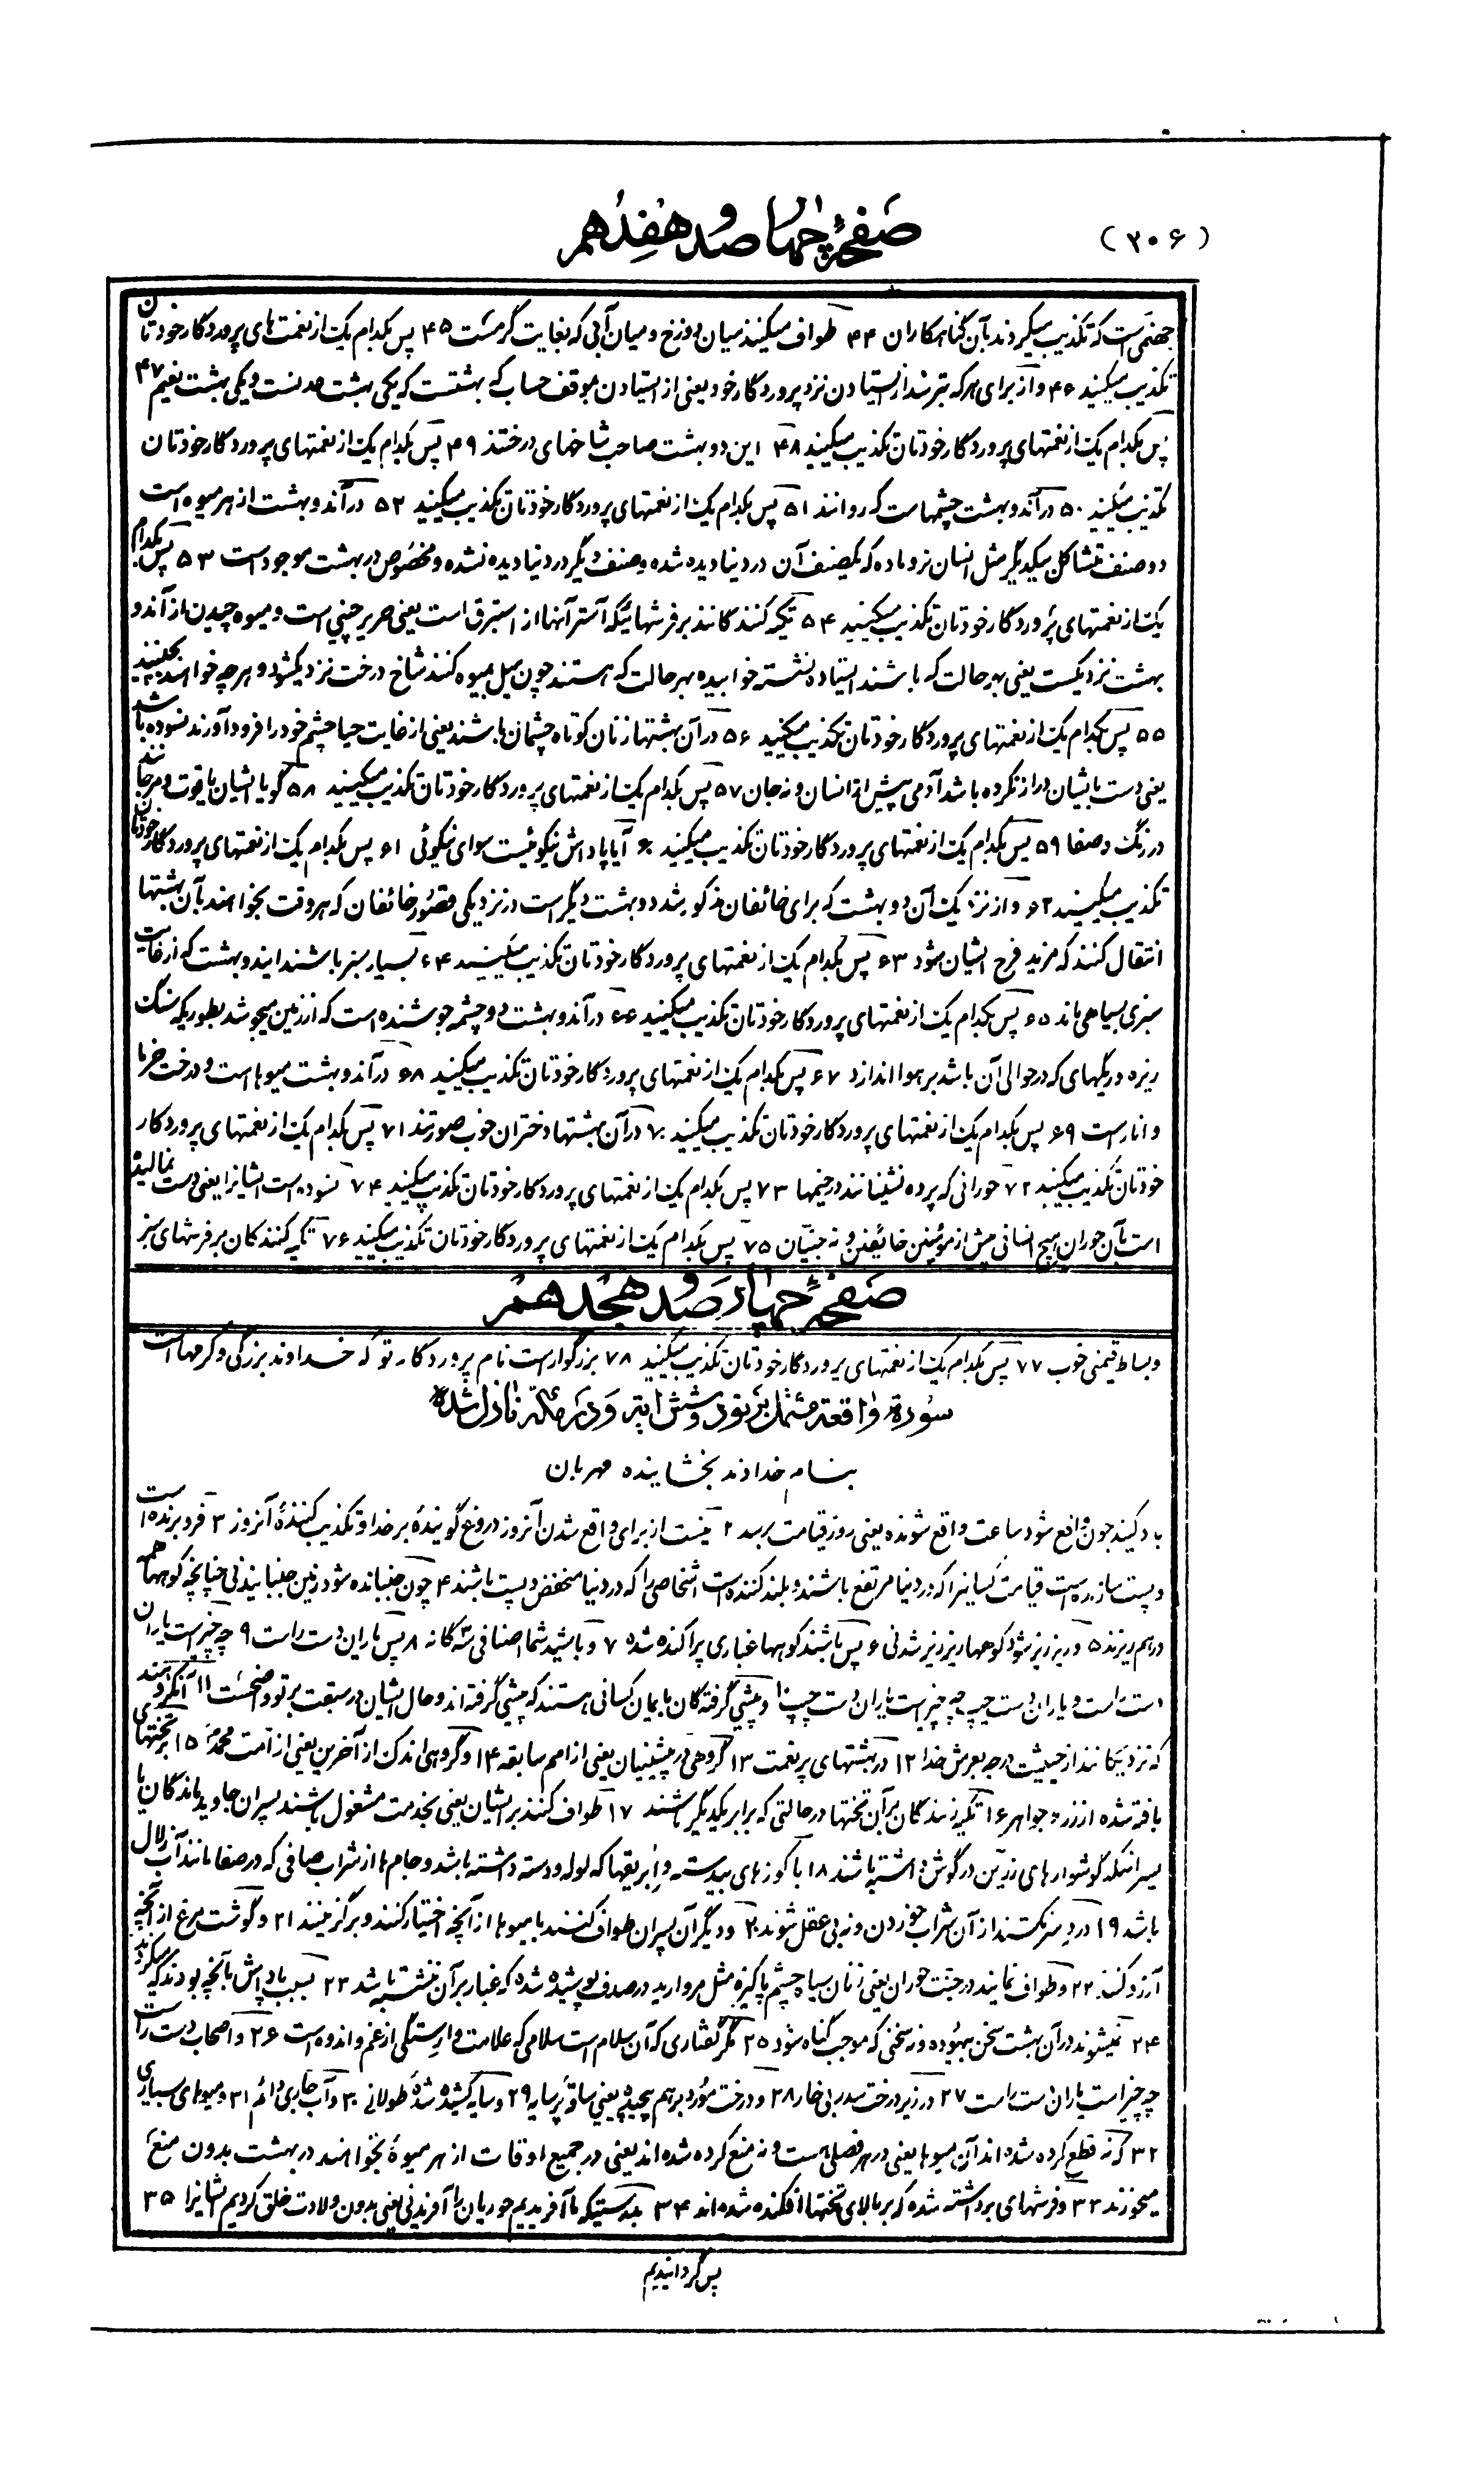 (۲۰۶)
صفحهٔ چهار صد و هفدهم
جهنمی است که تکذیب میکردند بآن گناهکاران ۴۴ طواف میکنند میان دوزخ و میان آبی که بغایت گرمست ۴۵ پس بکدام یک از نعمت های پروردگار خودتان
تکذیب میکنید ۴۶ و از برای هر که بترسد از ایستادن نزد پروردگار خود یعنی از ایستادن موقف حساب که بهشتست که یکی بهشت عدنست و یکی بهشت نعیم ۴۷
پس بکدام یک از نعمتهای پروردگار خودتان تکذیب میکنید ۴۸ این دو بهشت صاحب شاخهای درختند ۴۹ پس بکدام یک از نعمتهای پروردگار خودتان
تکذیب میکنید ۵۰ در آندو بهشت چشمهاست که روانند ۵۱ پس بکدام یک از نعمتهای پروردگار خودتان تکذیب میکنید ۵۲ در آندو بهشت از هر میوه است
دو صنف متشاکل بیکدیگر مثل انسان نر و ماده که یکصنف آن در دنیا دیده شده و صنف دیگر در دنیا دیده نشده و مخصوص در بهشت موجود است ۵۳ پس بکدام
یک از نعمتهای پروردگار خودتان تکذیب میکنید ۵۴ تکیه کنندگانند بر فرشهائیکه آستر آنها از استبرق است یعنی حریر چینی است و میوه چیدن از آندو
بهشت نزدیکست یعنی بهر حالت که باشند ایستاده نشسته خوابیده بهر حالت که هستند چون میل بمیوه کنند شاخ درخت نزدیکشود و هر چه خواهند بچینند
۵۵ پس بکدام یک از نعمتهای پروردگار خودتان تکذیب میکنید ۵۶ در آن بهشتها زنان کوتاه چشمان باشند یعنی از غایت حیا چشم خود را فرود آورند نسوده باشد
یعنی دست بایشان دراز نکرده باشد آدمی پیش از انسان و نه جان ۵۷ پس بکدام یک از نعمتهای پروردگار خودتان تکذیب میکنید ۵۸ گویا ایشان یاقوت و مرجانند
در رنگ و صفا ۵۹ پس بکدام یک از نعمتهای پروردگار خودتان تکذیب میکنید ۶۰ آیا پاداش نیکوئیست سوای نیکوئی ۶۱ پس بکدام یک از نعمتهای پروردگار خودتان
تکذیب میکنید ۶۲ و از نزدیک آن دو بهشت که برای خائفان مذکور شد دو بهشت دیگر است در نزدیکی قصور خائفان که هر وقت بخواهند بآن بهشتها
انتقال کنند که مزید فرح ایشان شود ۶۳ پس بکدام یک از نعمتهای پروردگار خودتان تکذیب میکنید ۶۴ بسیار سبز باشند ایندو بهشت که از غایت
سبزی بسیاهی ماند ۶۵ پس بکدام یک از نعمتهای پروردگار خودتان تکذیب میکنید ۶۶ در آندو بهشت دو چشمه جوشنده است که از زمین میجوشد بطوریکه سنگ
ریزه و ریگهای که در حوالی آن باشد بر هوا اندازد ۶۷ پس بکدام یک از نعمتهای پروردگار خودتان تکذیب میکنید ۶۸ در آندو بهشت میوها است و درخت خرما
و انار است ۶۹ پس بکدام یک از نعمتهای پروردگار خودتان تکذیب میکنید ۷۰ در آن بهشتها دختران خوب صورتند ۷۱ پس بکدام یک از نعمتهای پروردگار
خودتان تکذیب میکنید ۷۲ حورانی که پرده نشینانند در خیمها ۷۳ پس بکدام یک از نعمتهای پروردگار خودتان تکذیب میکنید ۷۴ نسوده است ایشانرا یعنی دست نمالیده
است بآن حوران هیچ انسانی پیش از مؤمنین خائفین و نه جنیان ۷۵ پس بکدام یک از نعمتهای پروردگار خودتان تکذیب میکنید ۷۶ تکیه کنندگان بر فرشهای سبز
صفحهٔ چهار صد و هجدهم
و بساط قیمتی خوب ۷۷ پس بکدام یک از نعمتهای پروردگار خودتان تکذیب میکنید ۷۸ بزرگوار است نام پروردگار تو که خداوند بزرگی و کرمها است
سورهٔ واقعة مشتمل بر نود و شش ایة و در مکه نازل شده
بنام خداوند بخشاینده مهربان
یاد کنید چون واقع شود ساعت واقع شونده یعنی روز قیامت برسد ۲ نیست از برای واقع شدن آنروز دروغ گویندهٔ بر خدا و تکذیب کنندهٔ آنروز ۳ فرو برنده است
و پست سازنده است قیامت کسانیرا که در دنیا مرتفع باشند و بلند کننده است اشخاصی را که در دنیا منخفض و پست باشند ۴ چون جنبانده شود زمین جنبانیدنی چنانچه کوهها همه
در هم ریزند ۵ و ریز ریز شود کوهها ریز ریز شدنی ۶ پس باشند کوهها غباری پراکنده شده ۷ و باشید شما اصنافی سه گانه ۸ پس یاران دست راست ۹ چه چیز است یاران
دست راست و یاران دست چپ چه چیز است یاران دست چپ ۱۰ و پیشی گرفتگان بایمان کسانی هستند که پیشی گرفته اند و حال ایشان در سبقت بر تو واضحست ۱۱ آنگروهند
که نزدیکانند از حیثیت درجه بعرش خدا ۱۲ در بهشتهای پر نعمت ۱۳ گروهی در پیشینیان یعنی از امم سابقه ۱۴ و گروهی اندک از آخرین یعنی از امت محمد ۱۵ بر تختهای
بافته شده از زر و جواهر ۱۶ تکیه زنندگان بر آن تختها در حالتی که برابر یکدیگر باشند ۱۷ طواف کنند بر ایشان یعنی بخدمت مشغول باشند پسران جاوید ماندگان یا
پسرانیکه گوشوارهای زرین در گوش داشته باشند ۱۸ با کوزهای بیدسته و ابریقها که لوله و دسته داشته باشد و جام ها از شراب صافی که در صفا مانند آب زلال
باشد ۱۹ درد سر نکشند از آن شراب خوردن و نه بی عقل شوند ۲۰ و دیگر آن پسران طواف کنند با میوها از آنچه اختیار کنند و برگزینند ۲۱ و گوشت مرغ از آنچه
آرزو کنند ۲۲ و طواف نمایند در جنت حوران یعنی زنان سیاه چشم پاکیزه مثل مروارید در صدف پوشیده شده که غبار بر آن ننشسته باشد ۲۳ بسبب پاداش بآنچه بودند که میکردند
۲۴ نمیشنوند در آن بهشت سخن بیهوده و نه سخنی که موجب گناه شود ۲۵ مگر گفتاری که آن سلام است سلامی که علامت وارستگی از غم و اندوه است ۲۶ و اصحاب دست راست
چه چیز است یاران دست راست ۲۷ در زیر درخت سدر بی خار ۲۸ و درخت موز بر هم پیچیده یعنی ساقه پر سایه ۲۹ و سایه کشیده شدهٔ طولانی ۳۰ و آب جاری دائم ۳۱ و میوهای بسیاری
۳۲ که نه قطع کرده شده اند آن میوها یعنی در هر فصلی هست و نه منع کرده شده اند یعنی در جمیع اوقات از هر میوهٔ بخواهند در بهشت بدون منع
میخورند ۳۳ و فرشهای برداشته شده که بر بالای تختها افکنده شده اند ۳۴ بدرستیکه ما آفریدیم حوریان را آفریدنی یعنی بدون ولادت خلق کردیم ایشانرا ۳۵
پس گردانیدیم